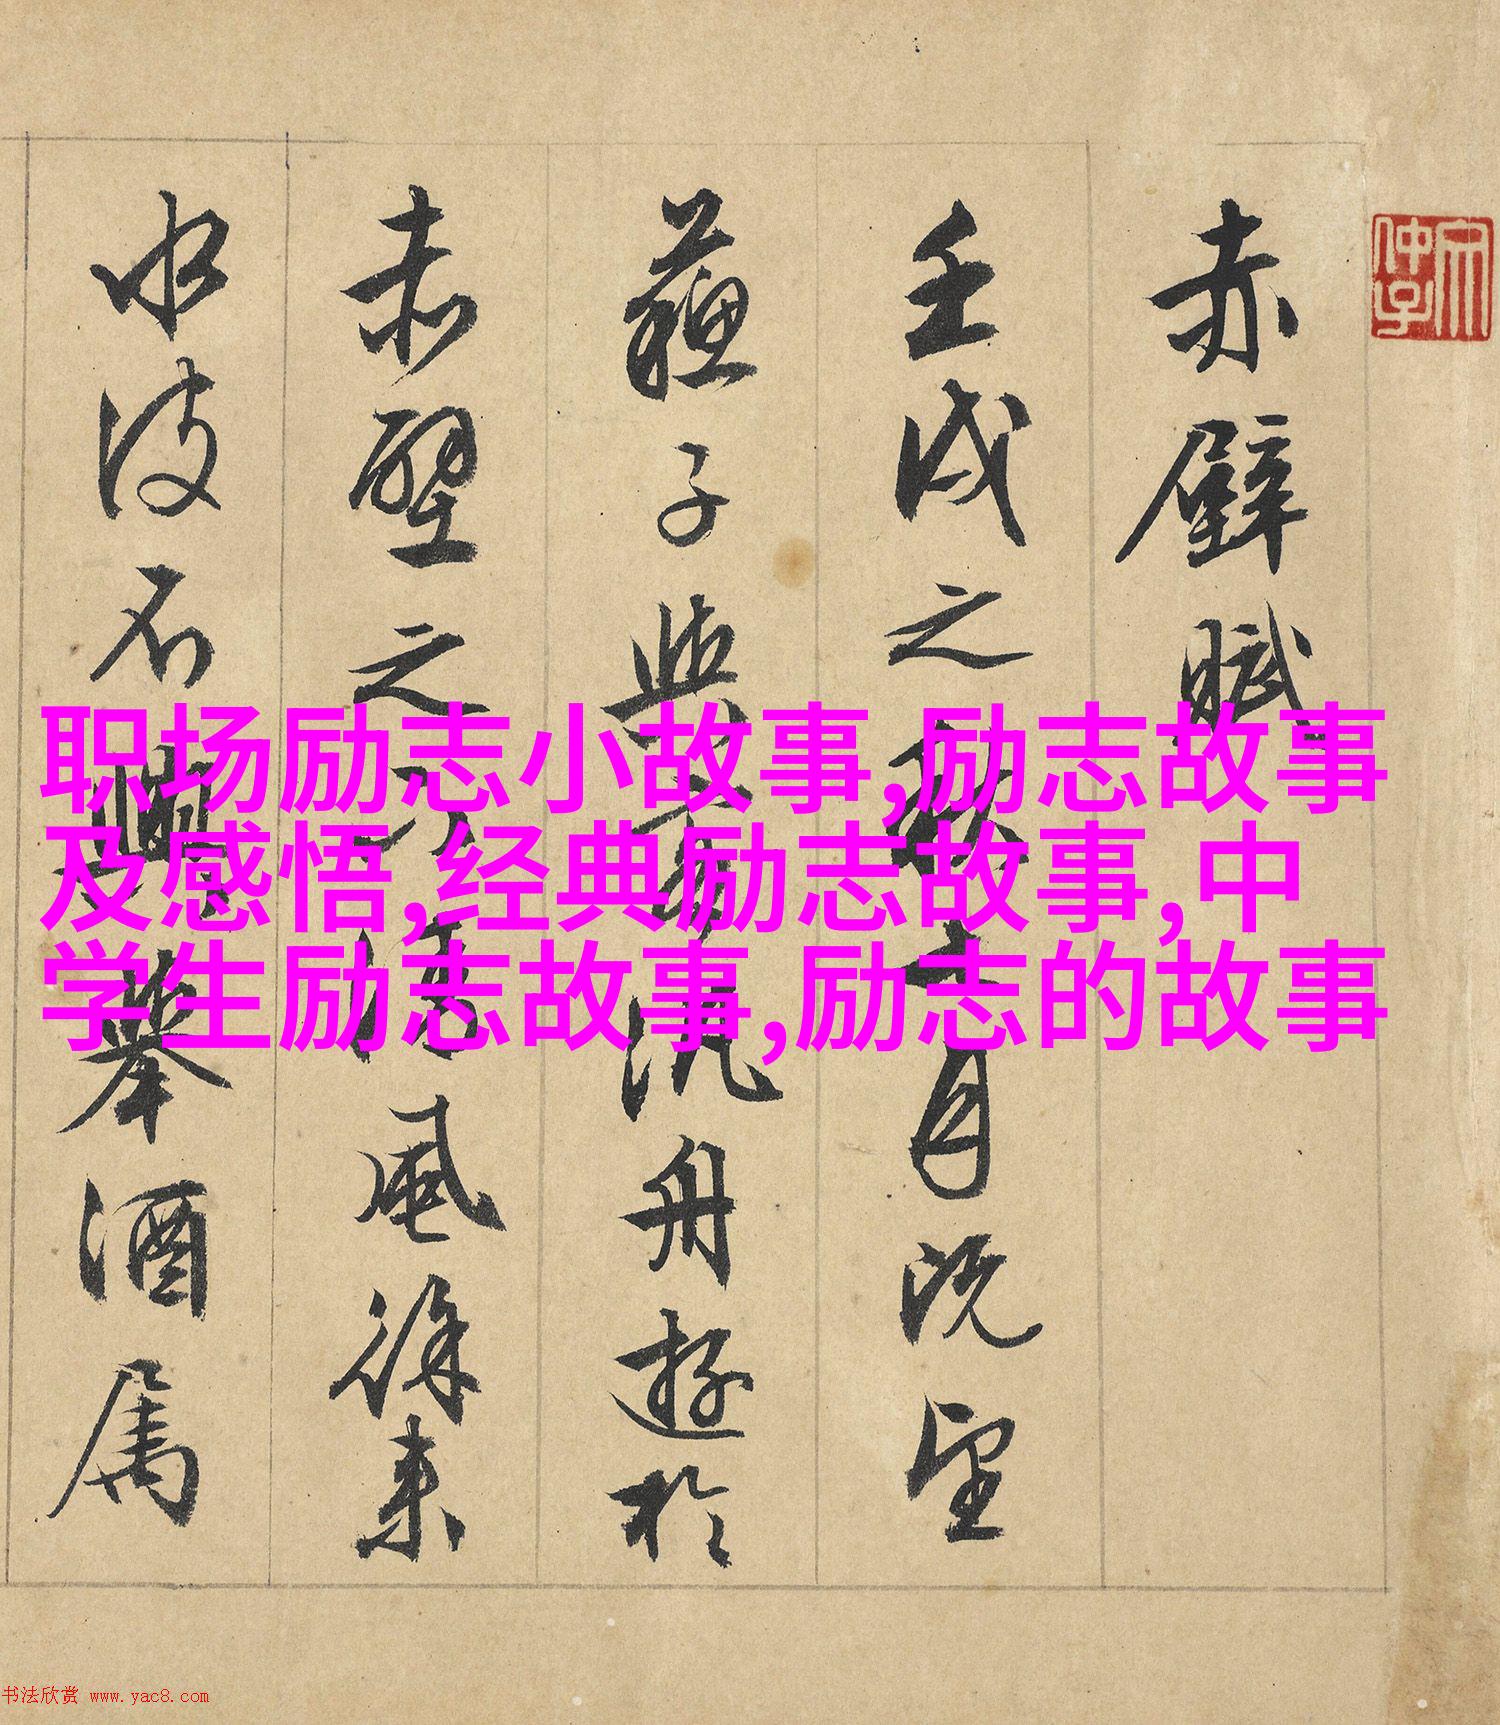 赤壁賦
壬戌之秋七月既望
蘇子與客汎舟遊於
赤壁之下清風徐来
水波不興舉酒属
职场励志小故事,励志故事
及感悟,经典励志故事,中
学生励志故事,励志的故事
书法欣赏 www.yac8.com